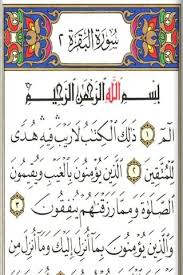 سُورَةُ البَقَرَةِ ٢
بِسْمِ اللَّهِ الرَّحْمَٰنِ الرَّحِيمِ
الٓمٓ ١ ذَٰلِكَ الْكِتَٰبُ لَا رَيْبَ فِيهِ هُدًى
لِّلْمُتَّقِينَ ٢ الَّذِينَ يُؤْمِنُونَ بِالْغَيْبِ وَيُقِيمُونَ
الصَّلَوٰةَ وَمِمَّا رَزَقْنَٰهُمْ يُنفِقُونَ ٣
وَالَّذِينَ يُؤْمِنُونَ بِمَا أُنزِلَ إِلَيْكَ وَمَا أُنزِلَ مِن